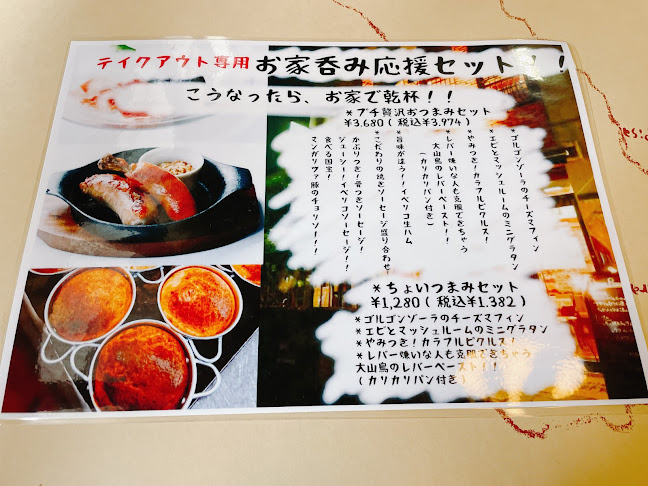 テイクアウト専用 お家呑み応援セット！！
こうなったら、お家で乾杯！！
*プチ贅沢おつまみセット
¥3,680(税込¥3,974)
*ゴルゴンゾーラのチーズマフィン
*エビとマッシュルームのミニグラタン
*やみつき！カラフルピクルス！
*レバー嫌いな人も克服できちゃう
大山鳥のレバーペースト！！
(カリカリパン付き)
*旨味がほう！！イベリコ生ハム
*こだわりの焼きソーセージ盛り合わせ
かぶりつき！骨つきソーセージ！
ジューシー！イベリコソーセージ！
食べる国宝！
マンガリッツァ豚のチョリソー！！
*ちょいつまみセット
¥1,280(税込¥1,382)
*ゴルゴンゾーラのチーズマフィン
*エビとマッシュルームのミニグラタン
*やみつき！カラフルピクルス！
*レバー嫌いな人も克服できちゃう
大山鳥のレバーペースト！！
(カリカリパン付き)